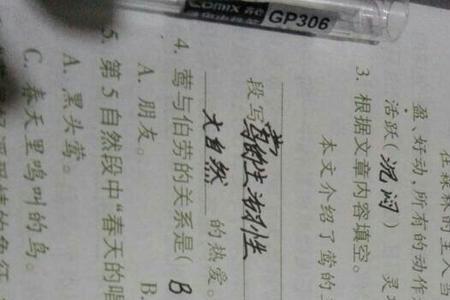 Comix
GP306
盈、好动,所有的动作
活跃( 沉闷 ) 灵
3. 根据文章内容填空。
本文介绍了莺的
段写莺的生活习性
大自然 的热爱。
4. 莺与伯劳的关系是( B
A. 朋友。 B.
5. 第5自然段中“春天的唱
A. 黑头莺。
C. 春天里鸣叫的鸟。